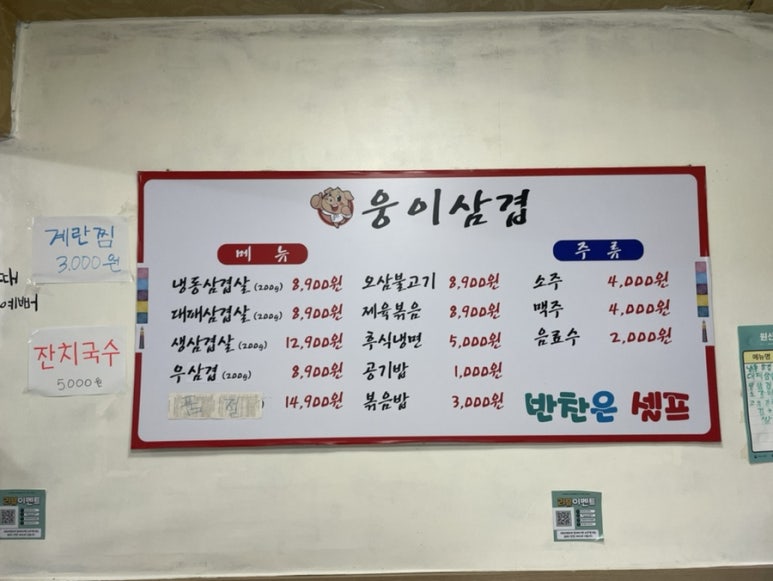 웅이삼겹
메뉴
냉동삼겹살 (200g) 8,900원
대패삼겹살 (200g) 8,900원
생삼겹살 (200g) 12,900원
우삼겹 (200g) 8,900원
품절 ) 14,900원
오삼불고기 8,900원
제육볶음 8,900원
후식냉면 5,000원
공기밥 1,000원
볶음밥 3,000원
주류
소주 4,000원
맥주 4,000원
음료수 2,000원
반찬은 셀프
계란찜
3,000원
잔치국수
5000원
때
예뻐
리뷰이벤트
리뷰이벤트
원산
메뉴명